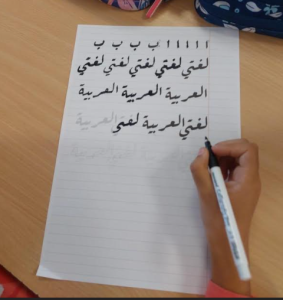 ا ا ا ا ا ب ب ب ب
لغتي لغتي لغتي لغتي لغتي
العربية العربية العربية
لغتي العربية لغتي العربية